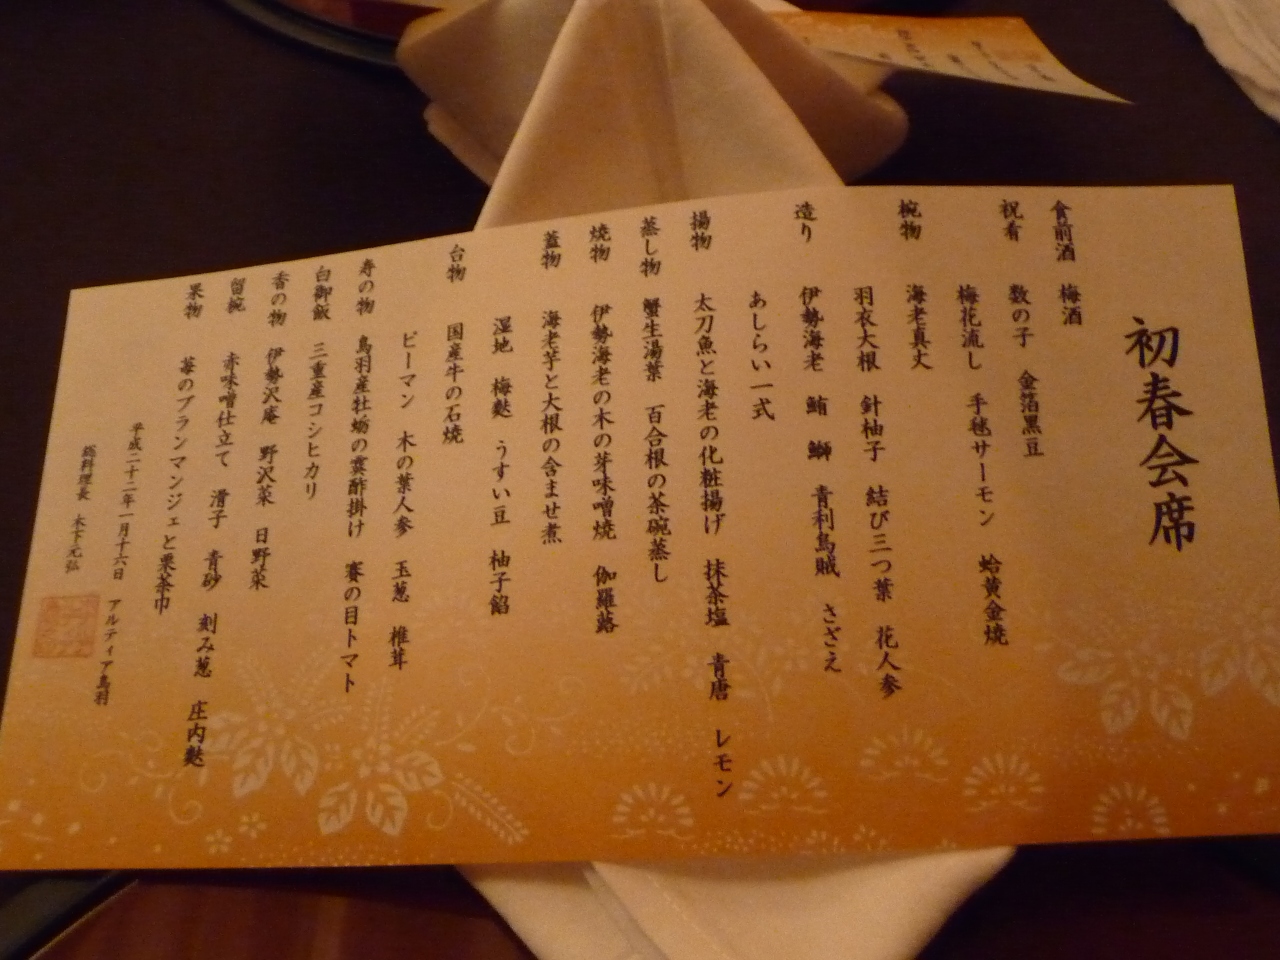 初春会席
食前酒 梅酒
祝肴 数の子 金箔黒豆
梅花流し 手毬サーモン 蛤黄金焼
椀物 海老真丈
羽衣大根 針柚子 結び三つ葉 花人参
造り 伊勢海老 鮪 鰤 青利烏賊 さざえ
あしらい一式
揚物 太刀魚と海老の化粧揚げ 抹茶塩 青唐 レモン
蒸し物 蟹生湯葉 百合根の茶碗蒸し
焼物 伊勢海老の木の芽味噌焼 伽羅蕗
蓋物 海老芋と大根の含ませ煮
湿地 梅麩 うすい豆 柚子餡
台物 国産牛の石焼
ピーマン 木の葉人参 玉葱 椎茸
寿の物 鳥羽産牡蛎の霙酢掛け 賽の目トマト
白御飯 三重産コシヒカリ
香の物 伊勢沢庵 野沢菜 日野菜
留椀 赤味噌仕立て 滑子 青砂 刻み葱 庄内麩
果物 苺のブランマンジェと栗茶巾
平成二十二年一月十六日 アルティア鳥羽
総料理長 木下元弘